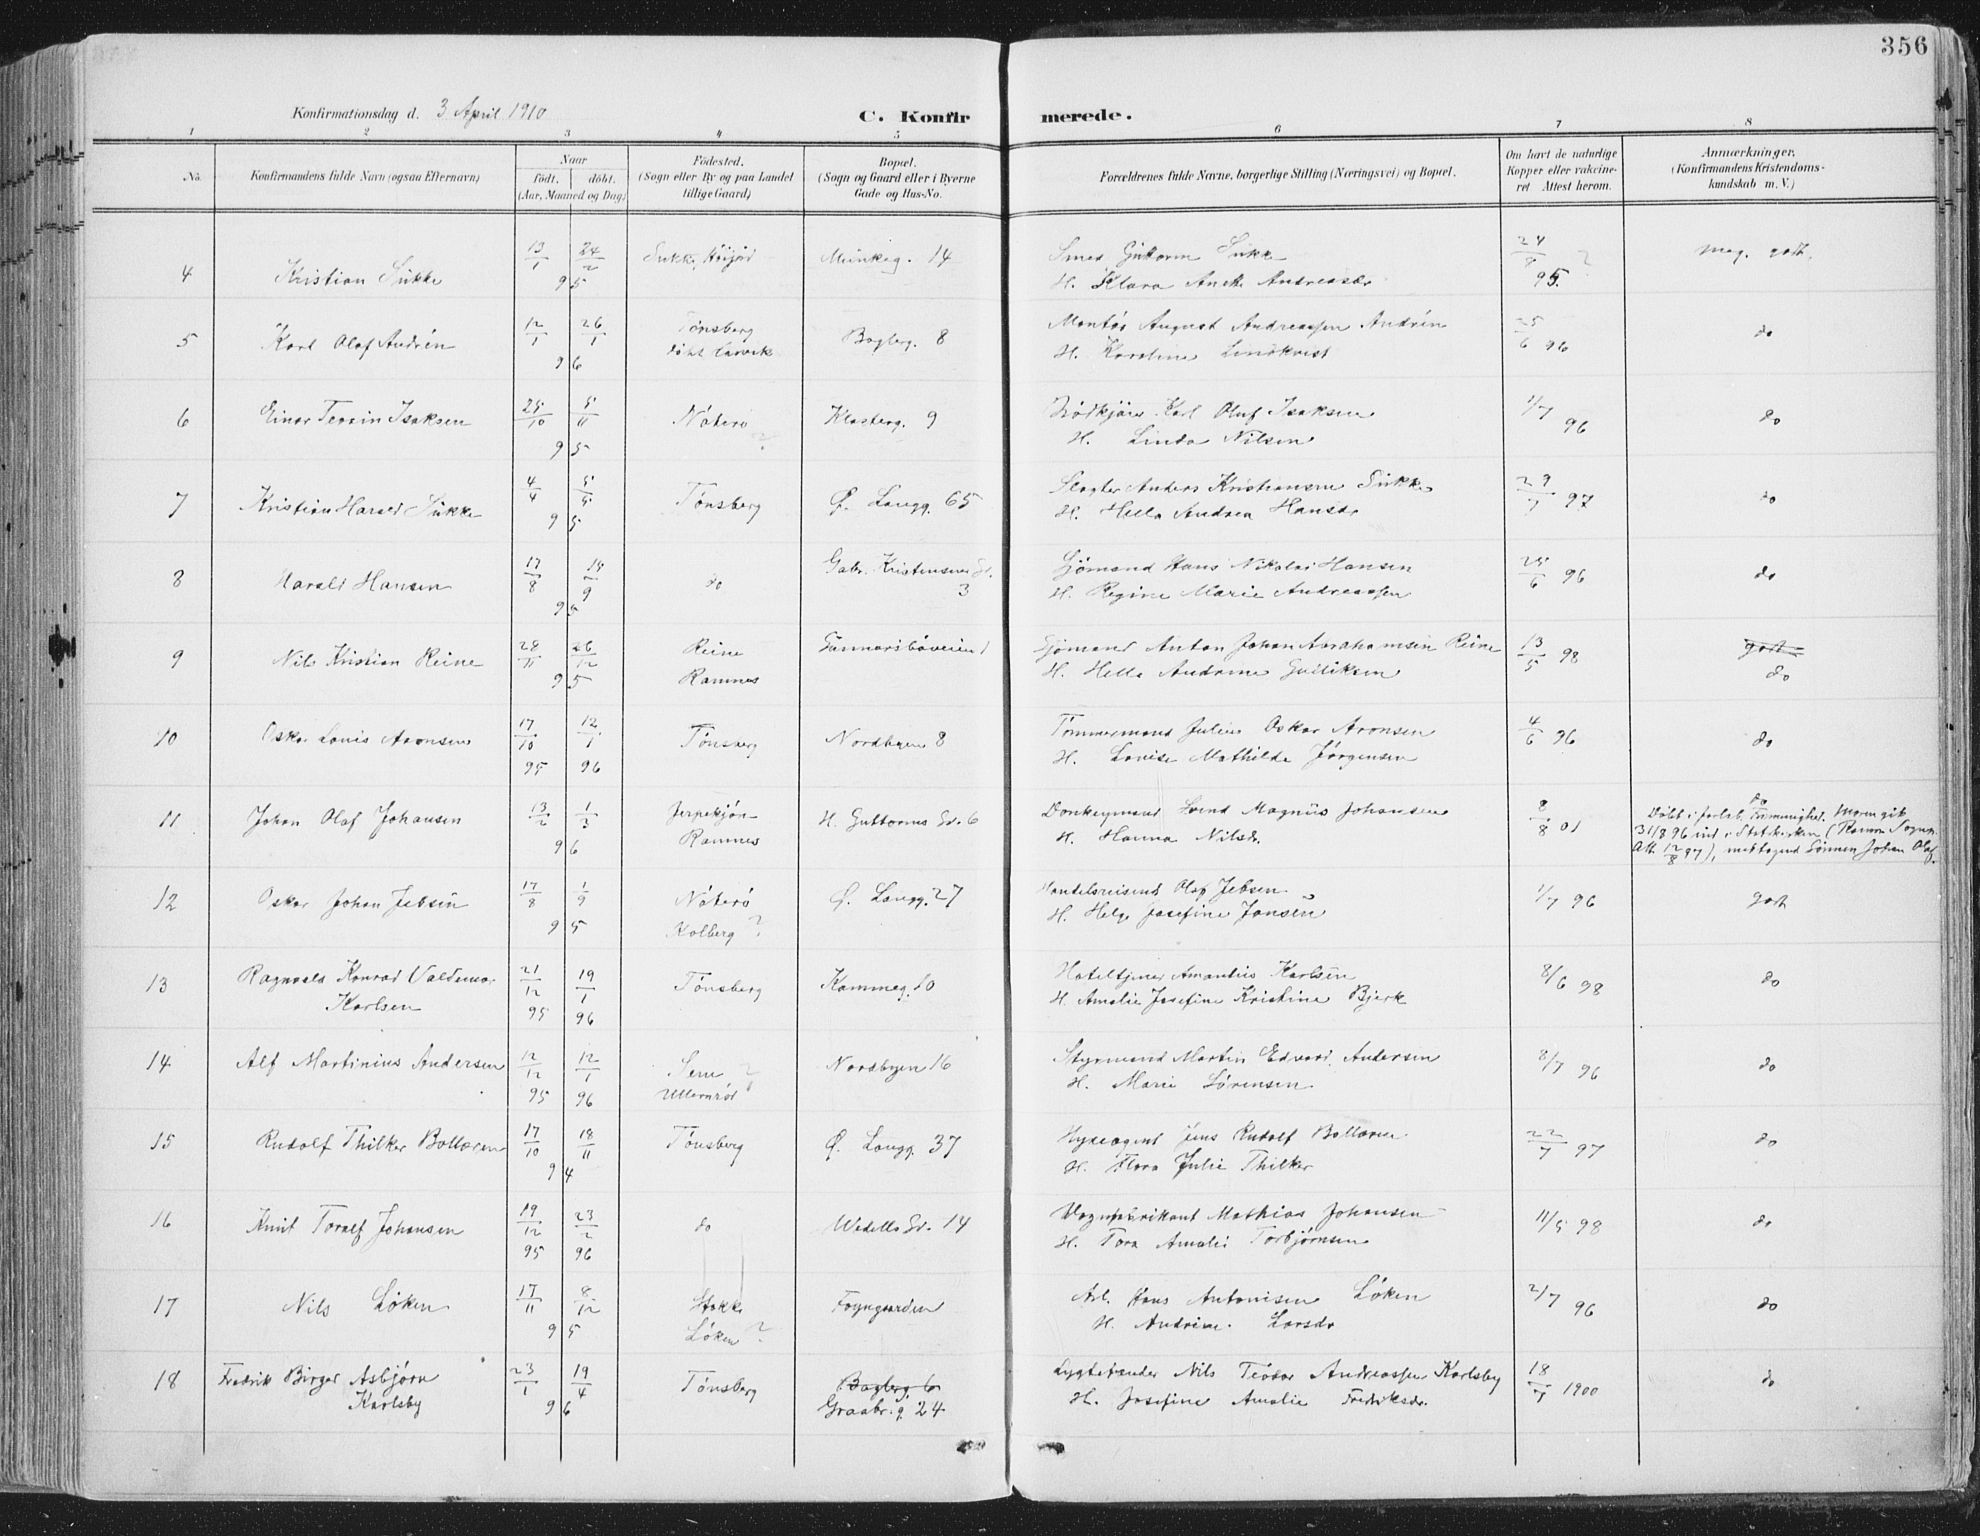 356
Konfirmationsdag d. 3 April 1910
C. Konfirmerede.
1 2 3 4 5 6 7 8
No. Konfirmandens fulde Navn (ogsaa Efternavn) Naar født. døbt. (Aar, Maaned og Dag) Fødested. (Sogn eller By og paa Landet tillige Gaard) Bopæl. (Sogn og Gaard eller i Byerne Gade og Hus-No. Forældrenes fulde Navne, borgerlige Stilling (Næringsvei) og Bopæl. Om havt de naturlige Kopper eller vakcineret Attest herom. Anmærkninger. (Konfirmandens Kristendomskundskab m. V.)
4 Kristian Sukke 13/1 24/2 95 Sukke, Høijord Munkeg. 14 Smed Guttorm Sukke 24/8 95. ? meg. godt.
H. Klara Aneth Andreasdr
5 Karl Olaf Andrén 12/1 26/1 96 Tønsberg døbt Larvik Bagberg. 8 Montør August Andreassen Andrén 25/6 96 do
H. Karoline Lindkvist
6 Einar Isaksen 25/10 5/11 95 Nøterø ? Klosterg. 9 Karl Oluf Isaksen 1/7 96 do
H. Linda Nilsen
7 Kristian Harald Sukke 4/4 5/5 95 Tønsberg Ø. Langg. 65 Slagter Anders Kristiansen Sukke 29/7 97 do
H. Hella Andrea Hansdr
8 Harald Hansen 17/8 15/9 95 do Gabr. Kristensens Gd. 3 Sjømand Hans Nikolai Hansen 25/6 96 do
H. Regine Marie Andreassen
9 Nils Kristian Reine 28/11 26/12 95 Reine Ramnes Gunnarsbøveien 1 Sjømand Anton Johan Abrahamsen Reine 13/5 98 godt do
H. Hella Andrine Gulliksen
10 Oskar Louis Aronsen 17/10 95 12/1 96 Tønsberg Nordbyen 8 Tømmermand Julius Oskar Aronsen 4/6 96 do
H. Lovise Mathilde Jørgensen
11 Johan Olaf Johansen 13/2 1/3 96 Jerpekjøn Ramnes H. Guttorms Gd. 6 Donkeymand Svend Magnus Johansen 2/8 01 do
H. Hanna Nilsdr. Døbt i Menighed. Moren gik
31/8 96 ind i Statskirken (Ramnes Sogn.
Att. 12/8 97), medtagend Sønnen Johan Olaf.
12 Oskar Johan Jebsen 17/8 1/9 95 Nøterø Kolberg ? Ø. Langg. 27 Handelsreisend Olaf Jebsen 1/7 96 godt
H. Helga Josefine Jansen
13 Ragnvald Konrad Valdemar Karlsen 21/12 95 19/1 96 Tønsberg Kammeg. 10 Hoteltjener Amandus Karlsen 8/6 98 do
H. Amalie Josefine Kristine Bjerk
14 Alf Martinius Andersen 12/12 95 12/1 96 Sem ? Ullernrød Nordbyen 16 Styrmand Martin Edvard Andersen 8/7 96 do
H. Marie Sørensen
15 Rudolf Thilker Bollæren 17/10 18/11 94 Tønsberg Ø. Langg. 37 Hyreagent Jens Rudolf Bollæren 22/7 97 do
H. Flora Julie Thilker
16 Knut Toralf Johansen 19/12 95 23/2 96 do Wedells Gd. 14 Vognfabrikant Mathias Johansen 11/5 98 do
H. Tora Amalie Torbjørnsen
17 Nils Løken 17/11 8/12 95 Stokke Løken ? Fayegaarden Arb. Hans Antonisen Løken 2/7 96 do
H. Andrine Larsdr
18 Fredrik Birger Asbjørn Karlsby 23/1 19/4 96 Tønsberg Bagberg. 6 Graabr.g. 24 Lygtetænder Nils Teodor Andreassen Karlsby 18/7 1900 do
H. Josefine Amalie Fredriksdr.